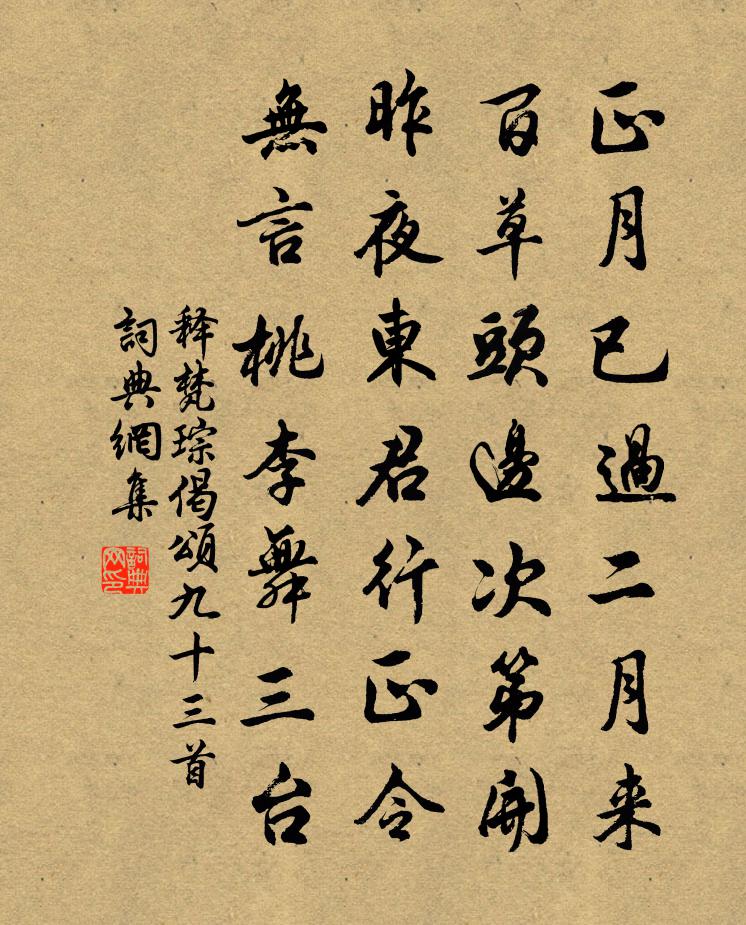 正月已過二月来
百草頭邊次第開
昨夜東君行正令
無言桃李舞三台
释梵琮偈頌九十三首
詞典網集
詞典网印